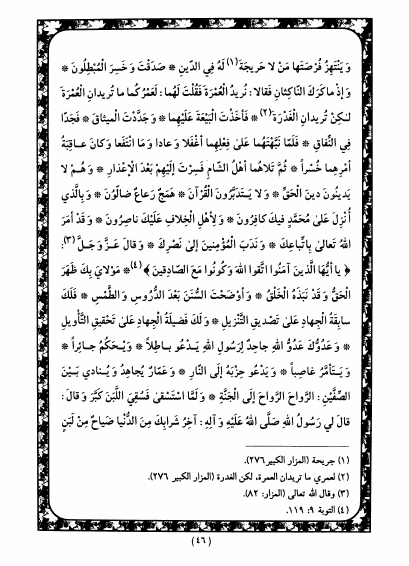 وَ يَنْتَهِزُ فُرْصَتَها مَنْ لا حَريجَةَ(١) لَهُ فِي الدّينِ * صَدَقْتَ وَ خَسِرَ الْمُبْطِلُونَ *
وَ إِذْ ماكَرَكَ النّاكِثانِ فَقالا: نُريدُ الْعُمْرَةَ فَقُلْتَ لَهُما: لَعَمْرُكُما ما تُريدانِ الْعُمْرَةَ
لٰكِنْ تُريدانِ الْغَدْرَةَ(٢) * فَأَخَذْتَ الْبَيْعَةَ عَلَيْهِما * وَ جَدَّدْتَ الْميثاقَ * فَجَدّا
فِي النِّفاقِ * فَلَمّا نَبَّهْتَهُما عَلىٰ فِعْلِهِما أَغْفَلا وَعادا وَ مَا انْتَفَعا وَكانَ عاقِبَةُ
أَمْرِهِما خُسْراً * ثُمَّ تَلاهُما أَهْلُ الشّامِ فَسِرْتَ إِلَيْهِمْ بَعْدَ الْإِعْذارِ * وَ هُمْ لا
يَدينُونَ دينَ الْحَقِّ * وَ لا يَتَدَبَّرُونَ الْقُرْآنَ * هَمَجٌ رَعاعٌ ضالُّونَ * وَ بِالَّذي
أُنْزِلَ عَلىٰ مُحَمَّدٍ فيكَ كافِرُونَ * وَ لِأَهْلِ الْخِلافِ عَلَيْكَ ناصِرُونَ * وَ قَدْ أَمَرَ
اللهُ تَعالىٰ بِاتِّباعِكَ * وَ نَدَبَ الْمُؤْمِنينَ إِلىٰ نَصْرِكَ * وَ قالَ عَزَّ وَ جَلَّ(٣):
﴿ يا أَيُّهَا الَّذينَ آمَنُوا اتَّقُوا اللهَ وَكُونُوا مَعَ الصّادِقينَ ﴾(٤) * مَوْلايَ بِكَ ظَهَرَ
الْحَقُّ وَ قَدْ نَبَذَهُ الْخَلْقُ * وَ أَوْضَحْتَ السُّنَنَ بَعْدَ الدُّرُوسِ وَ الطَّمْسِ * فَلَكَ
سابِقَةُ الْجِهادِ عَلىٰ تَصْديقِ التَّنْزيلِ * وَ لَكَ فَضيلَةُ الْجِهادِ عَلىٰ تَحْقيقِ التَّأْويلِ
* وَ عَدُوُّكَ عَدُوُّ اللهِ جاحِدٌ لِرَسُولِ اللهِ يَدْعُو باطِلاً * وَ يَحْكُمُ جائِراً *
وَ يَتَأَمَّرُ غاصِباً * وَ يَدْعُو حِزْبَهُ إِلَى النّارِ * وَ عَمّارٌ يُجاهِدُ وَ يُنادي بَيْنَ
الصَّفَّيْنِ: الرَّواحَ الرَّواحَ إِلَى الْجَنَّةِ * وَ لَمَّا اسْتَسْقىٰ فَسُقِيَ اللَّبَنَ كَبَّرَ وَ قالَ:
قالَ لي رَسُولُ اللهِ صَلَّى اللهُ عَلَيْهِ وَ آلِهِ: آخِرُ شَرابِكَ مِنَ الدُّنْيا ضَياحٌ مِنْ لَبَنٍ
(١) جريحة (المزار الكبير ٢٧٦).
(٢) لعمري ما تريدان العمرة، لكن الغدرة (المزار الكبير ٢٧٦).
(٣) وقال الله تعالى (المزار: ٨٢).
(٤) التوبة ٩: ١١٩.
(٤٦)